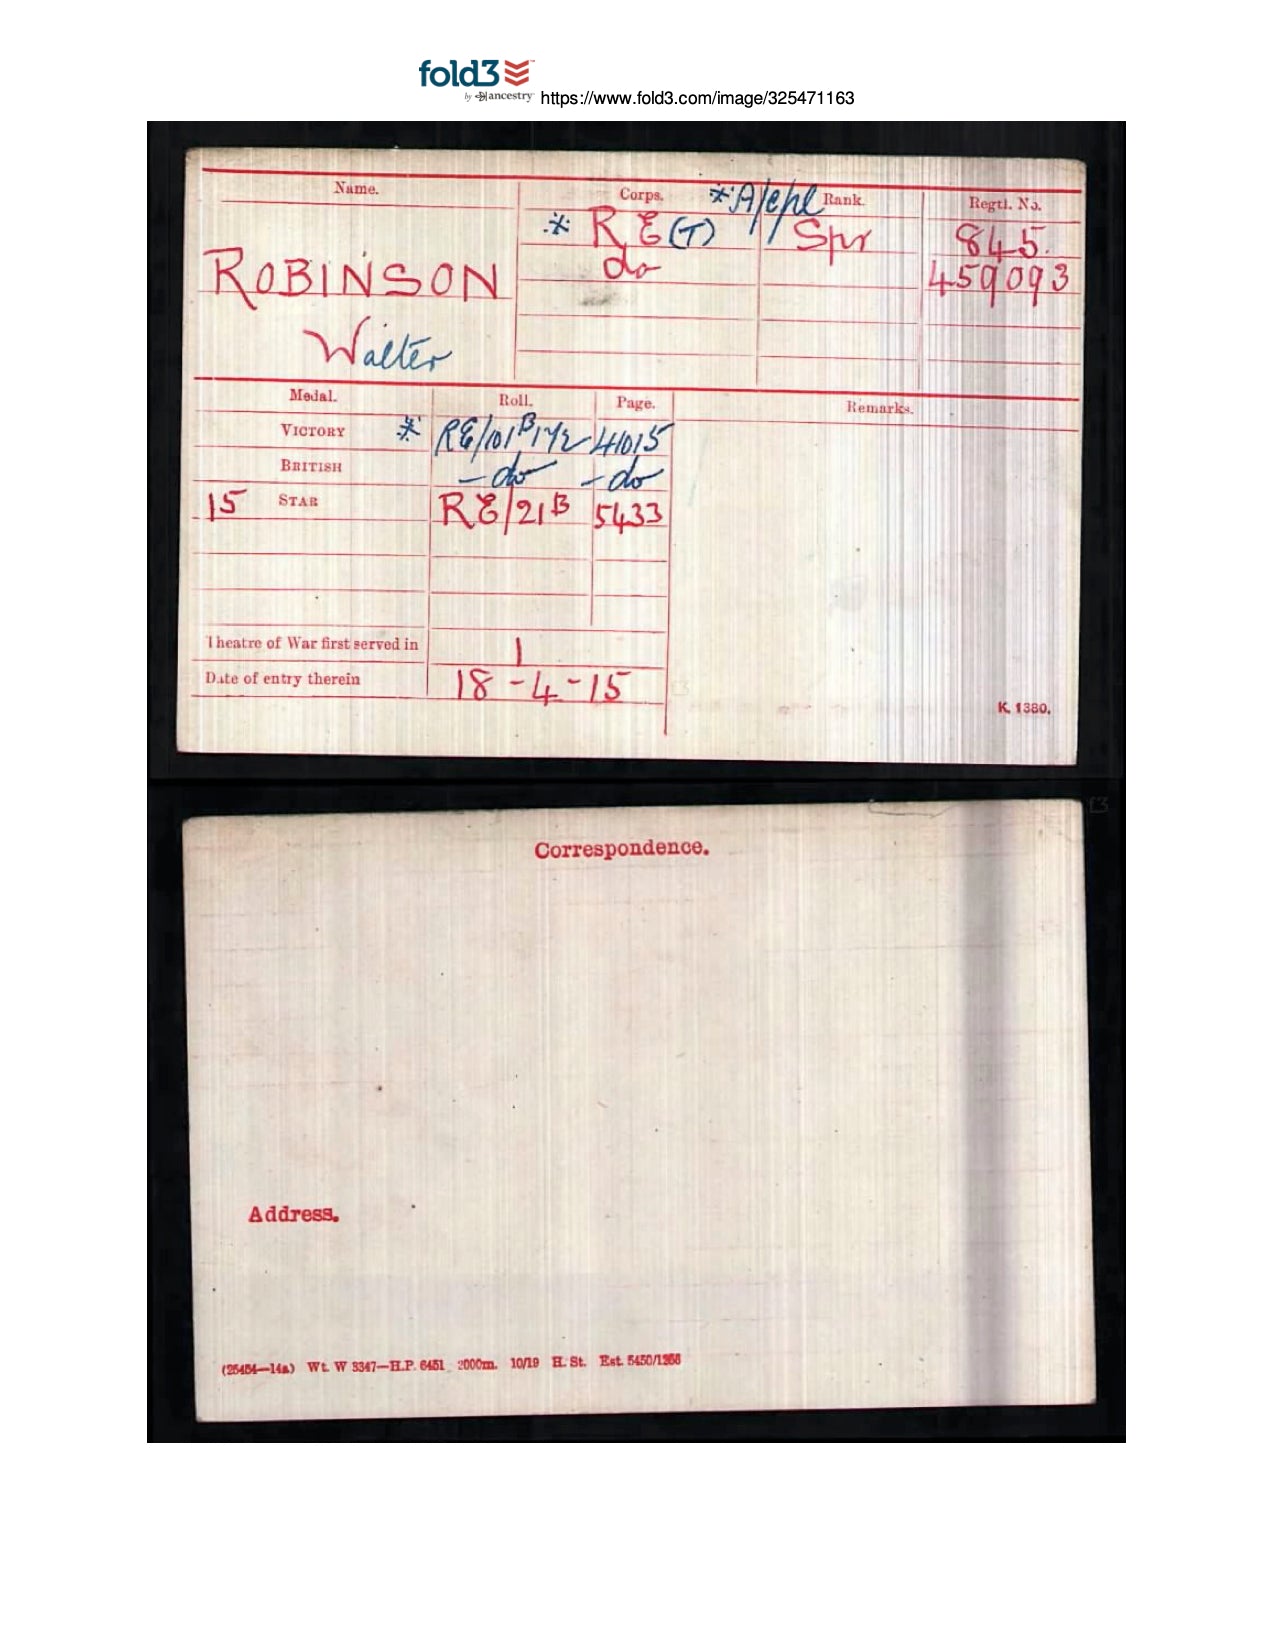 fold3
by ancestry https://www.fold3.com/image/325471163
Name. Corps. *A/Cpl Rank. Regtl. No.
* R E (T) Spr 845.
ROBINSON do 459093
Walter
Medal. Roll. Page. Remarks.
VICTORY * RE/101B142 41015
BRITISH - do - do
15 STAR RE/21B 5433
Theatre of War first served in 1
Date of entry therein 18-4-15
K. 1380.
Correspondence.
Address.
(26464—14a) Wt. W 3347—H.P. 6451 2000m. 10/19 H. St. Est. 5450/1268